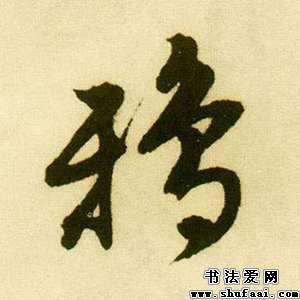 鸦
书法爱网
www.shufaai.com